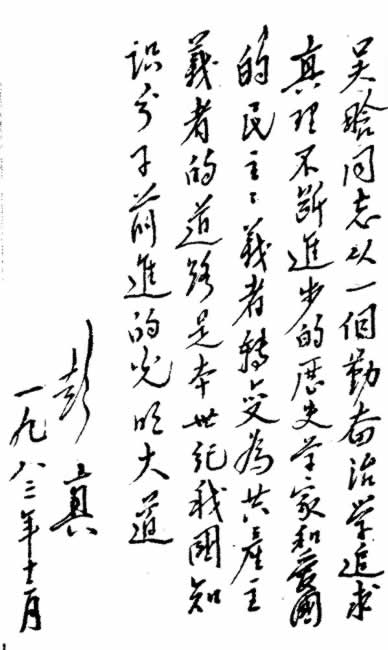 吴晗同志从一個勤奋治学追求
真理不断進步的歷史学家和愛國
的民主主義者轉变為共產主
義者的道路是本世纪我國知
识分子前進的光明大道
彭真
一九八三年十二月